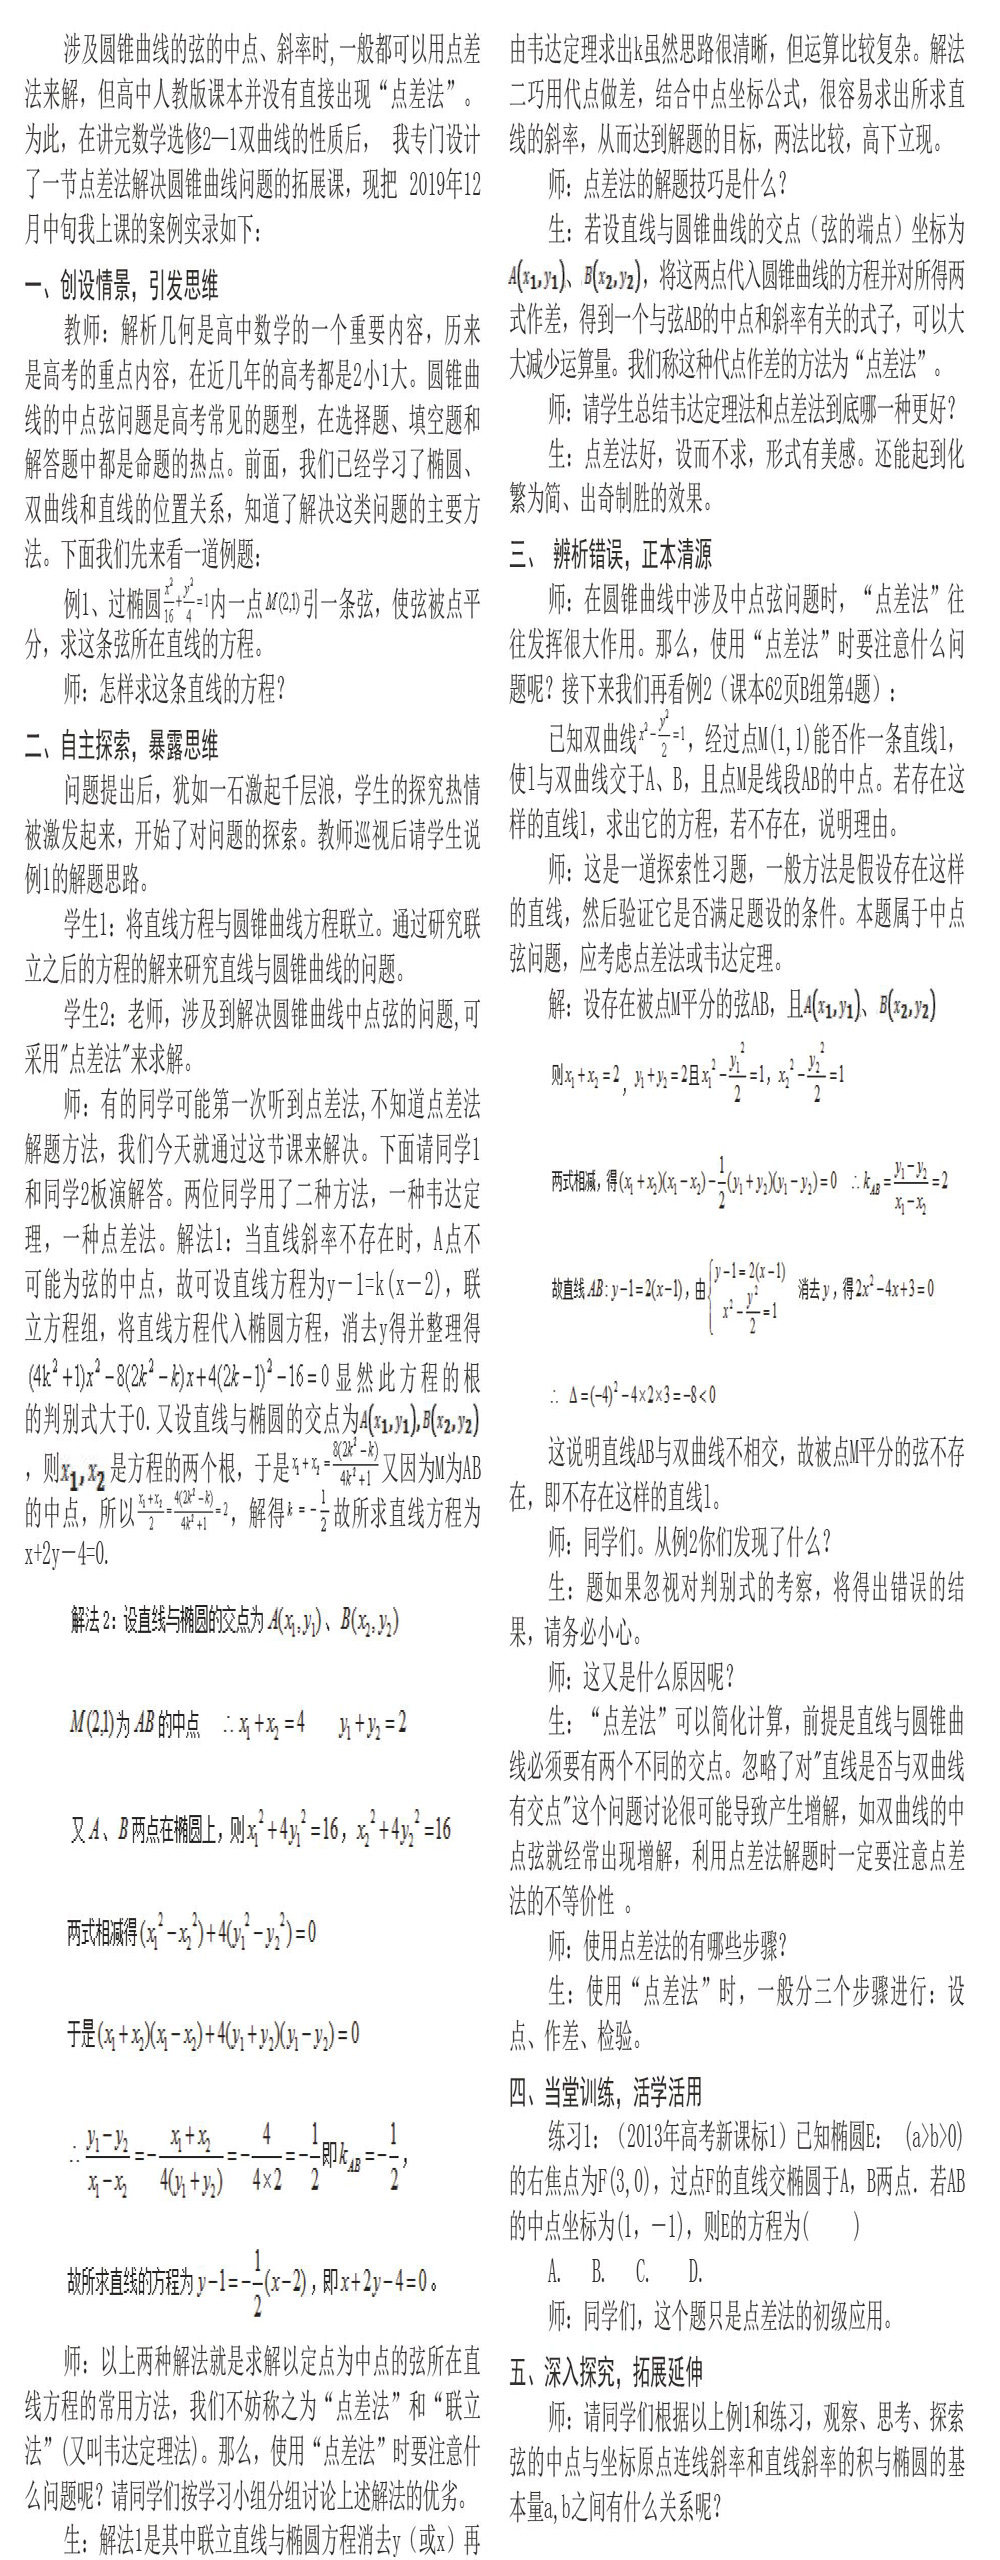 涉及圆锥曲线的弦的中点、斜率时,一般都可以用点差
法来解，但高中人教版课本并没有直接出现“点差法”。
为此，在讲完数学选修2—1双曲线的性质后， 我专门设计
了一节点差法解决圆锥曲线问题的拓展课，现把 2019年12
月中旬我上课的案例实录如下：
一、创设情景，引发思维
教师：解析几何是高中数学的一个重要内容，历来
是高考的重点内容，在近几年的高考都是2小1大。圆锥曲
线的中点弦问题是高考常见的题型，在选择题、填空题和
解答题中都是命题的热点。前面，我们已经学习了椭圆、
双曲线和直线的位置关系，知道了解决这类问题的主要方
法。下面我们先来看一道例题：
例1、过椭圆x²/16+y²/4=1内一点M(2,1)引一条弦，使弦被点平
分，求这条弦所在直线的方程。
师：怎样求这条直线的方程？
二、自主探索，暴露思维
问题提出后，犹如一石激起千层浪，学生的探究热情
被激发起来，开始了对问题的探索。教师巡视后请学生说
例1的解题思路。
学生1：将直线方程与圆锥曲线方程联立。通过研究联
立之后的方程的解来研究直线与圆锥曲线的问题。
学生2：老师，涉及到解决圆锥曲线中点弦的问题,可
采用"点差法"来求解。
师：有的同学可能第一次听到点差法,不知道点差法
解题方法，我们今天就通过这节课来解决。下面请同学1
和同学2板演解答。两位同学用了二种方法，一种韦达定
理，一种点差法。解法1：当直线斜率不存在时，A点不
可能为弦的中点，故可设直线方程为y－1=k(x－2)，联
立方程组，将直线方程代入椭圆方程，消去y得并整理得
(4k²+1)x²-8(2k²-k)x+4(2k-1)²-16=0显然此方程的根
的判别式大于0.又设直线与椭圆的交点为A(x₁,y₁),B(x₂,y₂)
，则x₁,x₂是方程的两个根，于是x₁+x₂=8(2k²-k)/(4k²+1)又因为M为AB
的中点，所以(x₁+x₂)/2=4(2k²-k)/(4k²+1)=2，解得k=-1/2故所求直线方程为
x+2y－4=0.
解法2：设直线与椭圆的交点为A(x₁,y₁)、B(x₂,y₂)
M(2,1)为AB的中点 ∴x₁+x₂=4 y₁+y₂=2
又A、B两点在椭圆上，则x₁²+4y₁²=16，x₂²+4y₂²=16
两式相减得(x₁²-x₂²)+4(y₁²-y₂²)=0
于是(x₁+x₂)(x₁-x₂)+4(y₁+y₂)(y₁-y₂)=0
∴(y₁-y₂)/(x₁-x₂)=-(x₁+x₂)/(4(y₁+y₂))=-4/(4×2)=-1/2即k_AB=-1/2，
故所求直线的方程为y-1=-1/2(x-2)，即x+2y-4=0。
师：以上两种解法就是求解以定点为中点的弦所在直
线方程的常用方法，我们不妨称之为“点差法”和“联立
法”(又叫韦达定理法)。那么，使用“点差法”时要注意什
么问题呢？请同学们按学习小组分组讨论上述解法的优劣。
生：解法1是其中联立直线与椭圆方程消去y（或x）再
由韦达定理求出k虽然思路很清晰，但运算比较复杂。解法
二巧用代点做差，结合中点坐标公式，很容易求出所求直
线的斜率，从而达到解题的目标，两法比较，高下立现。
师：点差法的解题技巧是什么？
生：若设直线与圆锥曲线的交点（弦的端点）坐标为
A(x₁,y₁)、B(x₂,y₂)，将这两点代入圆锥曲线的方程并对所得两
式作差，得到一个与弦AB的中点和斜率有关的式子，可以大
大减少运算量。我们称这种代点作差的方法为“点差法”。
师：请学生总结韦达定理法和点差法到底哪一种更好？
生：点差法好，设而不求，形式有美感。还能起到化
繁为简、出奇制胜的效果。
三、 辨析错误，正本清源
师：在圆锥曲线中涉及中点弦问题时，“点差法”往
往发挥很大作用。那么，使用“点差法”时要注意什么问
题呢？接下来我们再看例2（课本62页B组第4题）：
已知双曲线x²-y²/2=1，经过点M(1,1)能否作一条直线l，
使l与双曲线交于A、B，且点M是线段AB的中点。若存在这
样的直线l，求出它的方程，若不存在，说明理由。
师：这是一道探索性习题，一般方法是假设存在这样
的直线，然后验证它是否满足题设的条件。本题属于中点
弦问题，应考虑点差法或韦达定理。
解：设存在被点M平分的弦AB，且A(x₁,y₁)、B(x₂,y₂)
则x₁+x₂=2，y₁+y₂=2且x₁²-y₁²/2=1，x₂²-y₂²/2=1
两式相减，得(x₁+x₂)(x₁-x₂)-1/2(y₁+y₂)(y₁-y₂)=0 ∴k_AB=(y₁-y₂)/(x₁-x₂)=2
故直线AB：y-1=2(x-1)，由{y-1=2(x-1) x²-y²/2=1 消去y，得2x²-4x+3=0
∴ Δ=(-4)²-4×2×3=-8<0
这说明直线AB与双曲线不相交，故被点M平分的弦不存
在，即不存在这样的直线l。
师：同学们。从例2你们发现了什么？
生：题如果忽视对判别式的考察，将得出错误的结
果，请务必小心。
师：这又是什么原因呢？
生：“点差法”可以简化计算，前提是直线与圆锥曲
线必须要有两个不同的交点。忽略了对"直线是否与双曲线
有交点"这个问题讨论很可能导致产生增解，如双曲线的中
点弦就经常出现增解，利用点差法解题时一定要注意点差
法的不等价性 。
师：使用点差法的有哪些步骤？
生：使用“点差法”时，一般分三个步骤进行：设
点、作差、检验。
四、当堂训练，活学活用
练习1：（2013年高考新课标1）已知椭圆E： (a>b>0)
的右焦点为F(3,0)，过点F的直线交椭圆于A，B两点．若AB
的中点坐标为(1，－1)，则E的方程为( )
A. B. C. D.
师：同学们，这个题只是点差法的初级应用。
五、深入探究，拓展延伸
师：请同学们根据以上例1和练习，观察、思考、探索
弦的中点与坐标原点连线斜率和直线斜率的积与椭圆的基
本量a,b之间有什么关系呢？